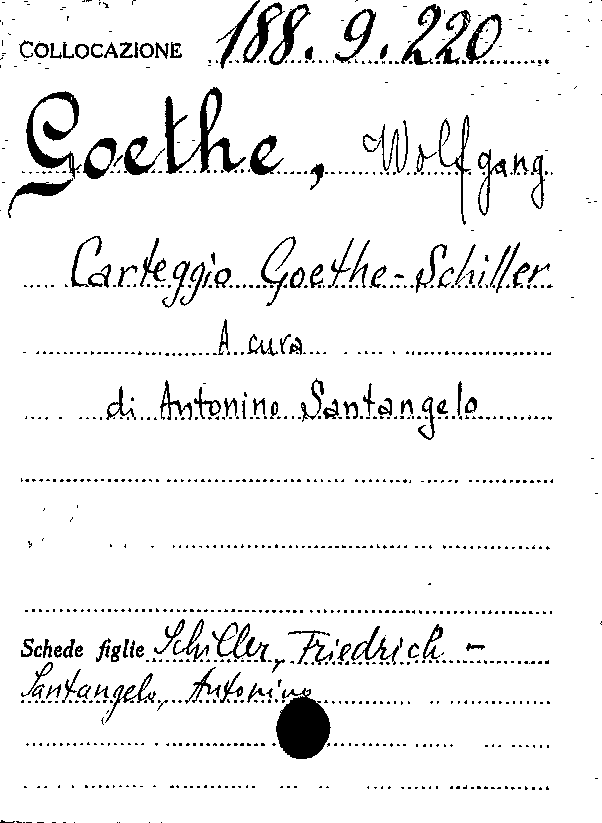 COLLOCAZIONE 188.9.220
Goethe, Wolfgang
Carteggio Goethe-Schiller
A cura
di Antonino Santangelo
Schede figlie Schiller, Friedrich -
Santangelo, Antonino